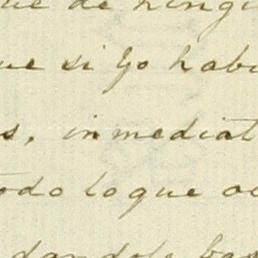 ue de ningu
ue si yo habi
s, inmediat
todo lo que oc
dandole bas